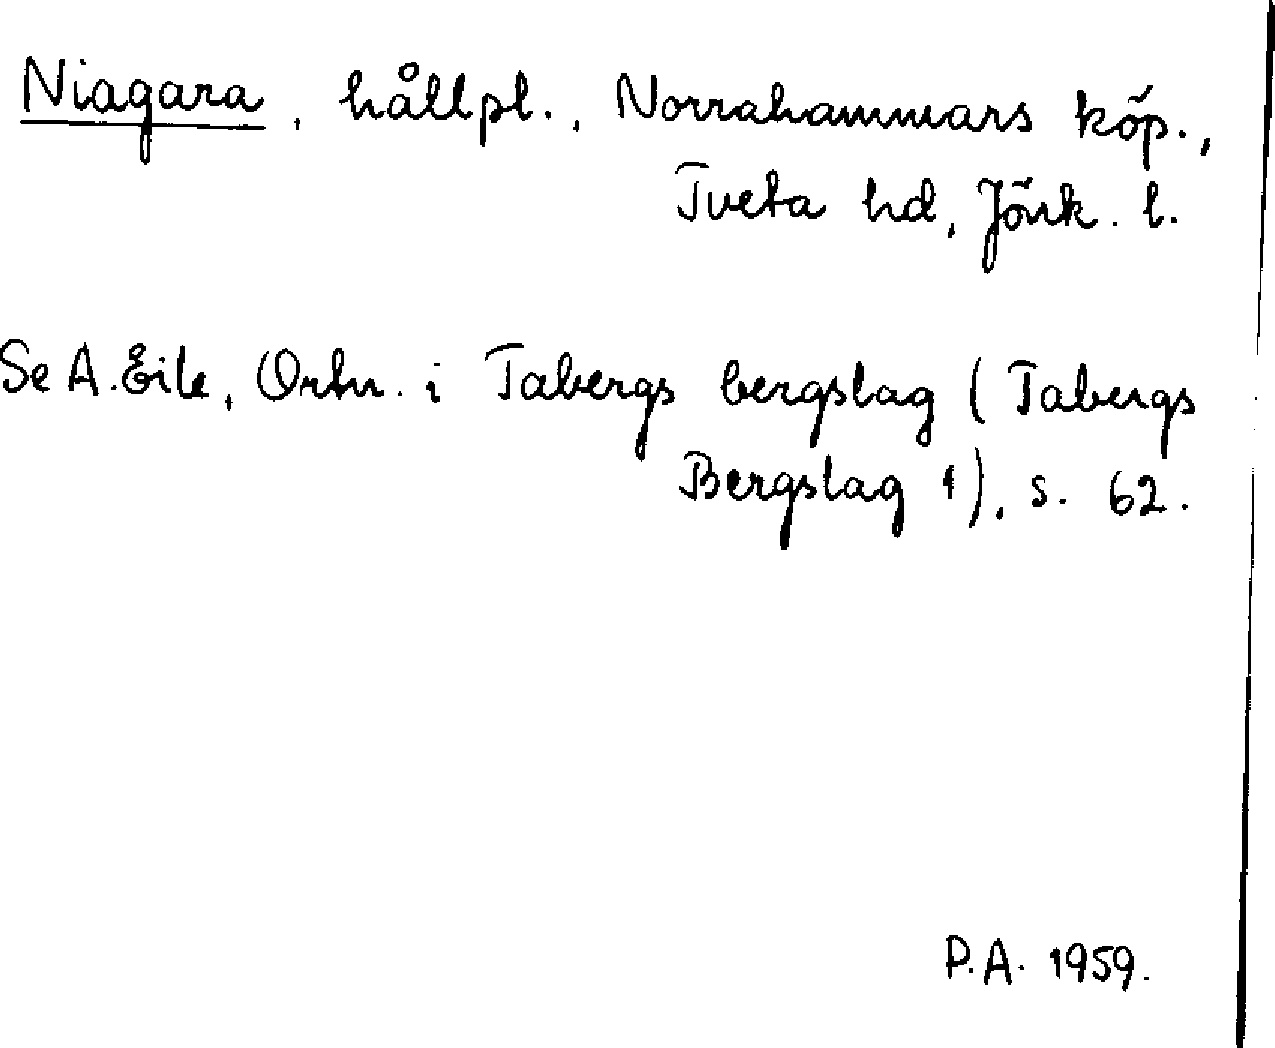 Niagara, hållpl., Norrahammars köp.,
Tveta hd, Jönk. l.
Se A. Eile, Ortn. i Tabergs bergslag (Tabergs
Bergslag 1), s. 62.
P.A. 1959.